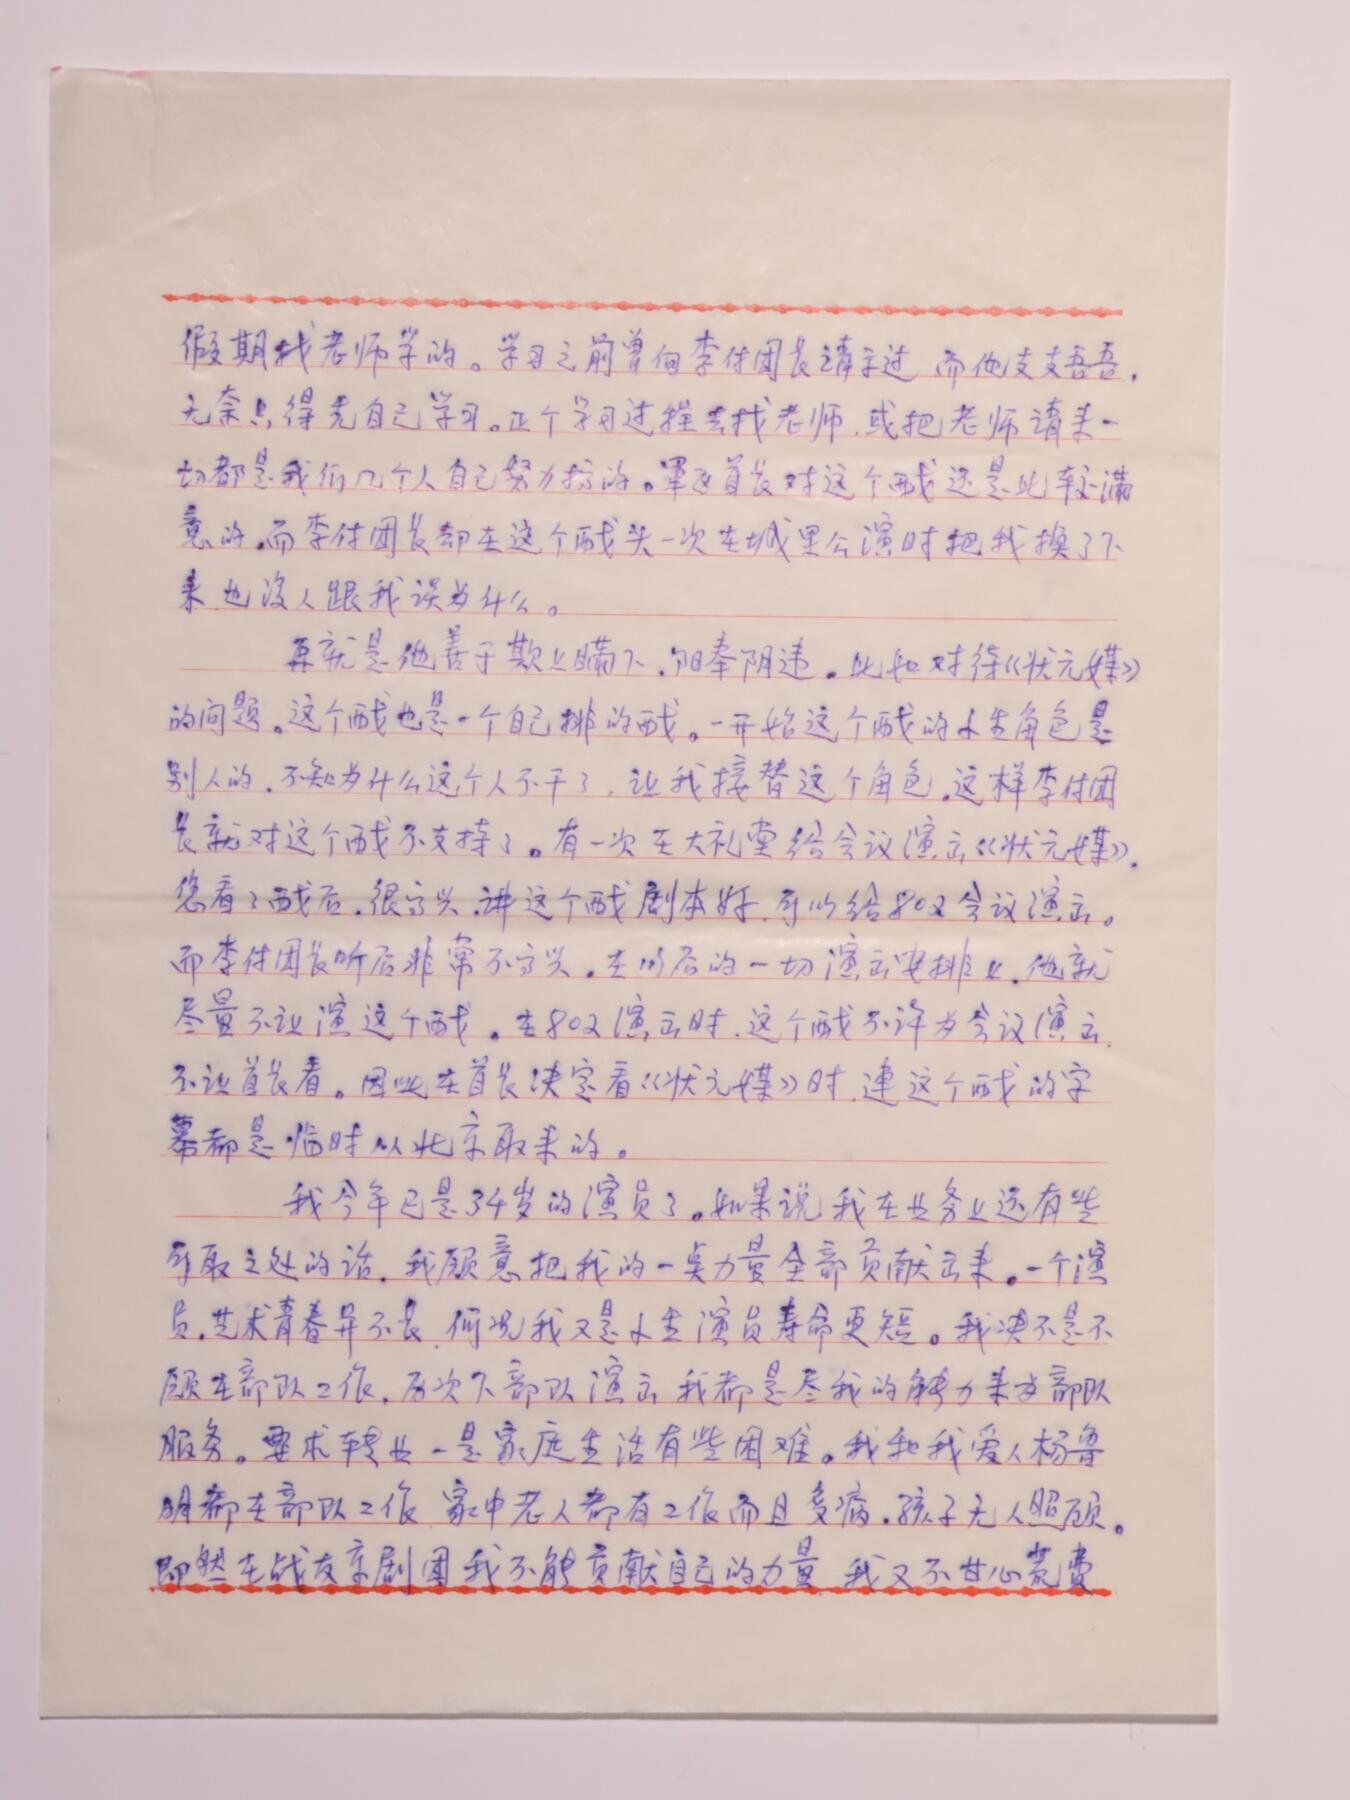 假期找老师学的。学习之前曾向李付团长请示过 而他支支吾吾，
无奈只得先自己学习。正个学习过程去找老师，或把老师请来一
切都是我们几个人自己努力搞的。军区首长对这个戏还是比较满
意的，而李付团长却在这个戏头一次在城里公演时把我换了下
来，也没人跟我谈为什么。
再就是他善于欺上瞒下，阳奉阴违。比如对待《状元媒》
的问题。这个戏也是一个自己排的戏。一开始这个戏的小生角色是
别人的，不知为什么这个人不干了，让我接替这个角色，这样李付团
长就对这个戏不支持了。有一次在大礼堂给会议演出《状元媒》，
您看了戏后，很高兴，讲这个戏剧本好，可以给802会议演出。
而李付团长听后非常不高兴，在以后的一切演出安排上，他就
尽量不让演这个戏。在802演出时，这个戏不许为会议演出，
不让首长看。因此在首长决定看《状元媒》时，连这个戏的字
幕都是临时从北京取来的。
我今年已是34岁的演员了。如果说我在业务上还有些
可取之处的话，我愿意把我的一点力量全部贡献出来。一个演
员，艺术青春并不长，何况我又是小生演员寿命更短。我决不是不
愿在部队工作，历次下部队演出 我都是尽我的能力来为部队
服务。要求转业一是家庭生活有些困难。我和我爱人杨鲁
明都在部队工作 家中老人都有工作而且多病，孩子无人照顾。
即然在战友京剧团我不能贡献自己的力量 我又不甘心荒费